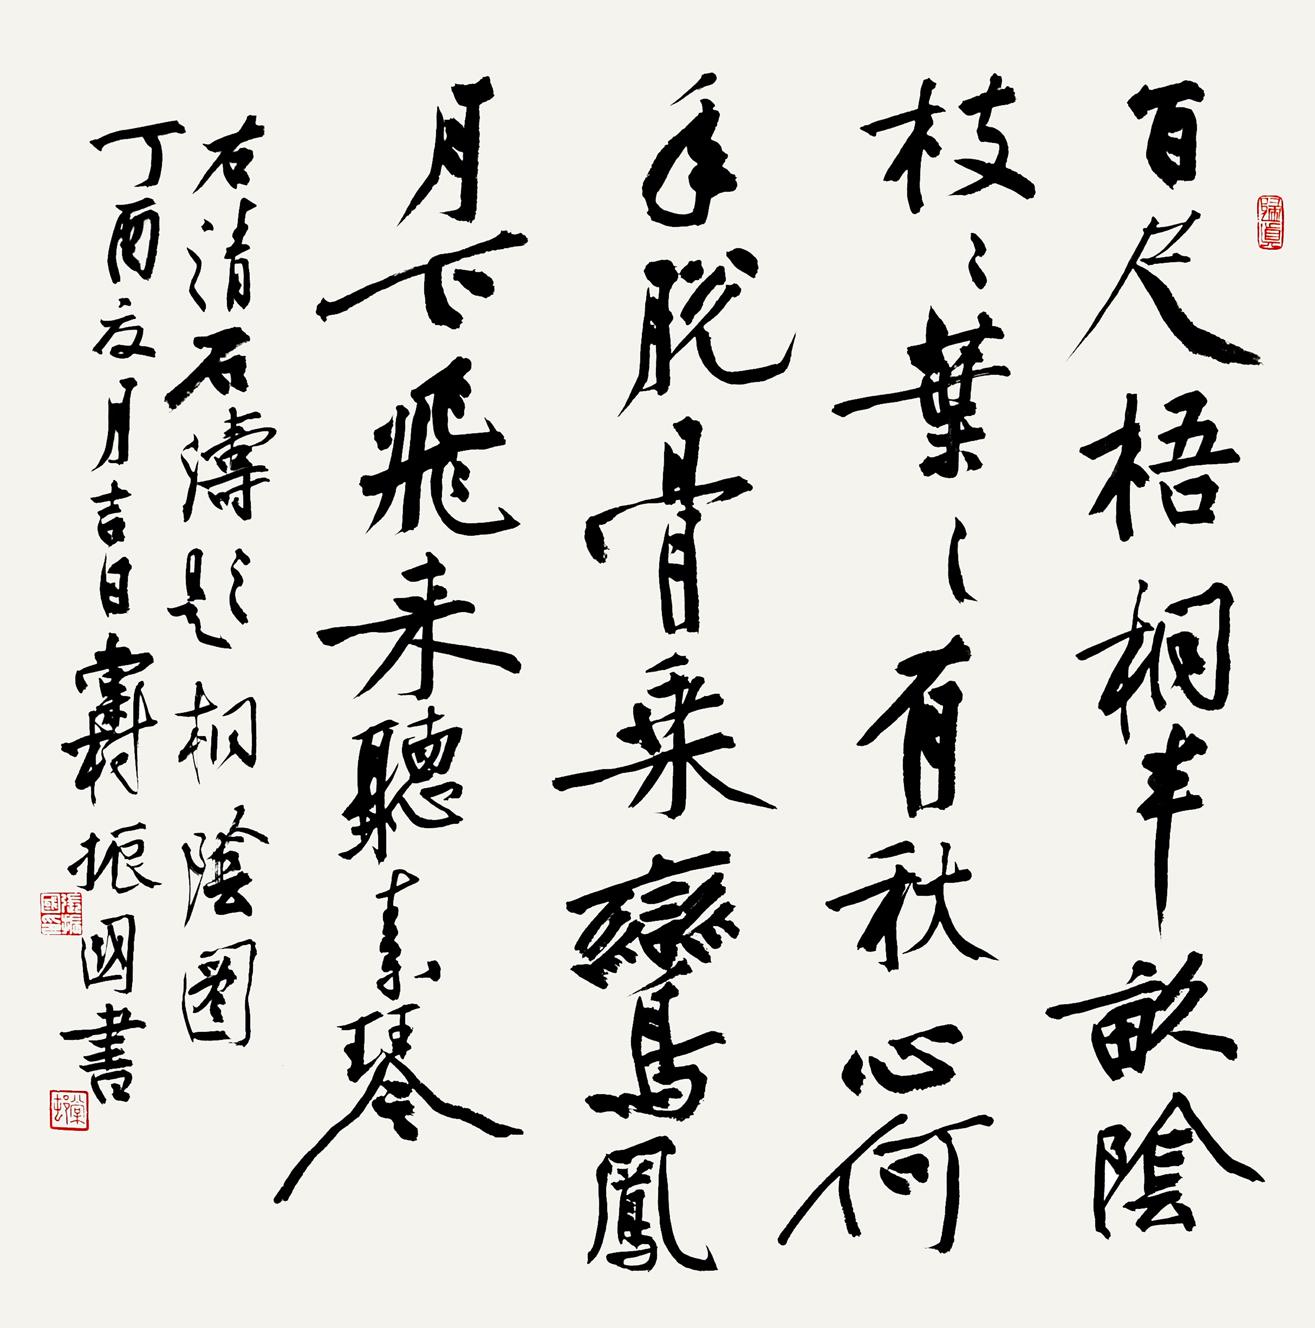 百尺梧桐半畝陰
枝〻葉〻有秋心何
年脱骨乗鸞鳳
月下飛来聽素琴
右清石濤題桐陰圖
丁酉夏月吉日棠村振國書